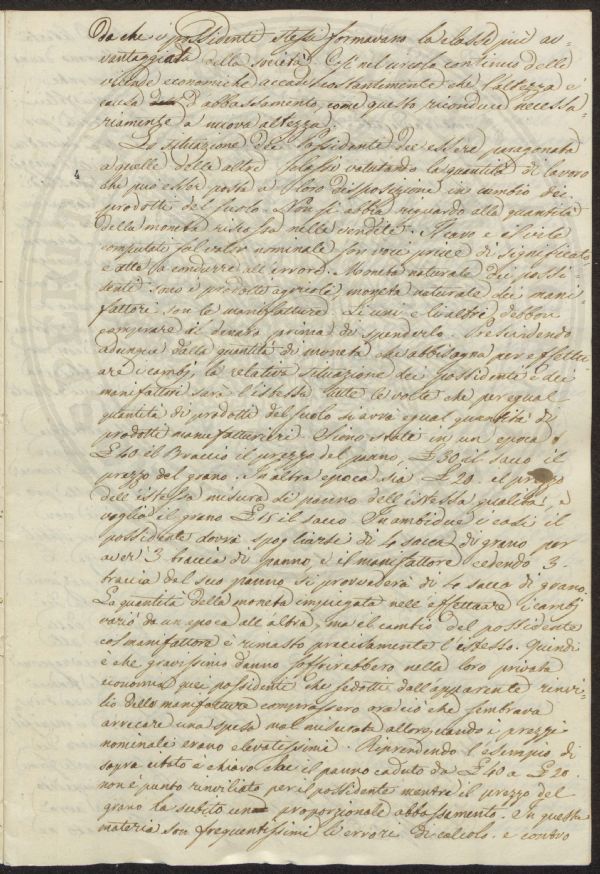 da che i possidente stessi formavano la classe più av-
vantaggiata della società. Così nel corso continuo delle
vicende economiche accade costantemente che l'altezza è
causa d'abbassamento, come questo riconduce necessa-
riamente a nuova altezza.
La situazione dei Possidente dee essere paragonata
a quelle delle altre classi valutando la quantità di lavoro
4
che può esser posta a loro disposizione in cambio dei
prodotti del suolo. Non si abbia riguardo alla quantità
della moneta riscossa nelle vendite. Il caro e il vile
computati sul valor nominale son voci prive di significato
e atte a condurre all'errore. Moneta naturale dei possi
denti sono i prodotti agricoli, moneta naturale dei mani
fattori son le manifatture. Li uni e li altri debbon
comprare il denaro prima di spenderlo. Prescindendo
adunque dalla quantità di moneta che abbisogna per effettu-
are i cambj la relativa situazione dei possidente e dei
manifattori sarà l'istessa tutte le volte che per egual
quantità di prodotti del suolo si avrà egual quantità di
prodotti manufatturieri. Siano state in un epoca
£ 40 il Braccio il prezzo del panno, £ 30 il sacco il
prezzo del grano. In altra epoca sia £ 20. il prezzo
dell'istessa misura di panno dell'istessa qualità, e
vaglia il grano £ 15 il sacco. In ambidue i casi il
possidente dovrà spogliarsi di 4 sacca di grano per
aver 3 braccia di panno, e il manifattore cedendo 3.
braccia del suo panno si provvederà di 4 sacca di grano.
La quantità della moneta impiegata nell'effettuare i cambj
variò da un epoca all'altra, ma il cambio del possidente
col manifattore è rimasto precisamente l'istesso. Quindi
è che gravissimo danno soffrirebbero nella loro privata
economia quei possidenti che sedotti dall'apparente rinvi-
lio delle manifatture comprassero ora ciò che sembrava
arrecare una spesa mal misurata allorquando i prezzi
nominali erano elevatissimi. Riprendendo l'esempio di
sopra citato è chiaro che il panno caduto da £ 40 a £ 20.
non è punto rinviliato per il possidente mentre il prezzo del
grano ha subito un proporzionale abbassamento. In questa
materia son frequentissimi li errori di calcolo. e contro